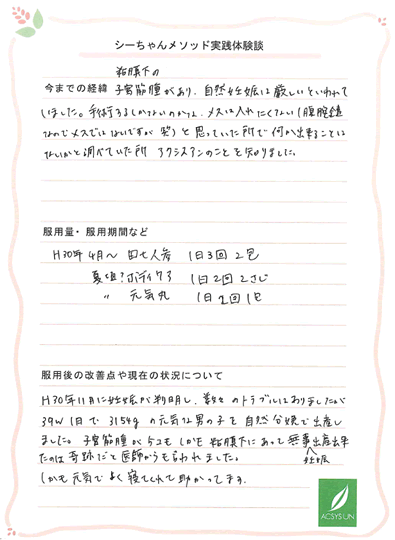 シーちゃんメソッド実践体験談
粘膜下の
今までの経緯 子宮筋腫があり、自然妊娠は厳しいといわれて
いました。手術するしかないのかなぁ、メスは入れたくない(腹腔鏡
なのでメスではないですが 笑)と思っていた所で何か出来ることは
ないかと調べていた所 アクシスアンのことを知りました。
服用量・服用期間など
H30年4月〜 田七人参 1日3回 2包
1日2回 2さじ
〃 元気丸 1日2回1包
服用後の改善点や現在の状況について
H30年11月に妊娠が判明し、数々のトラブルはありましたが
39W1日で3154gの元気な男の子を自然分娩で出産し
ました。子宮筋腫が今もしかも粘膜下にあって無事出産出来
妊娠
たのは奇跡だと医師からも言われました。
しかも元気でよく寝てくれて助かってます。
ACSYSUN